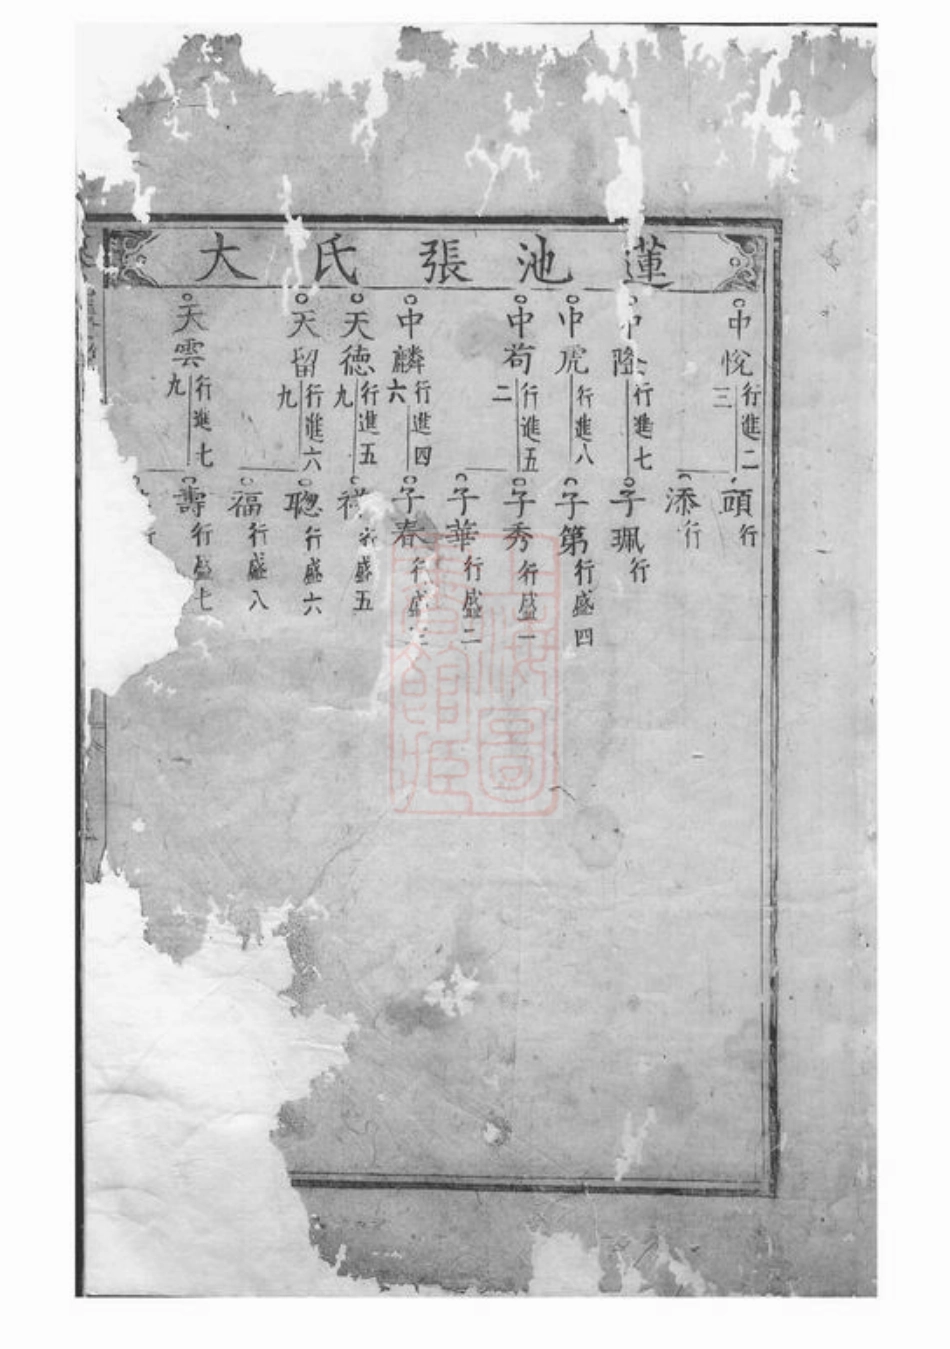 蓮池張氏大
中悅行進二三
中隆行進七
中虎行進八
中苟行進五二
中麟行進四六
天德行進五九
天留行進六九
天雲行進七九
頭行
添行
子珮行
子第行盛四
子秀行盛一
子華行盛二
子春行盛三
祥行盛五
聰行盛六
福行盛八
壽行盛七
行